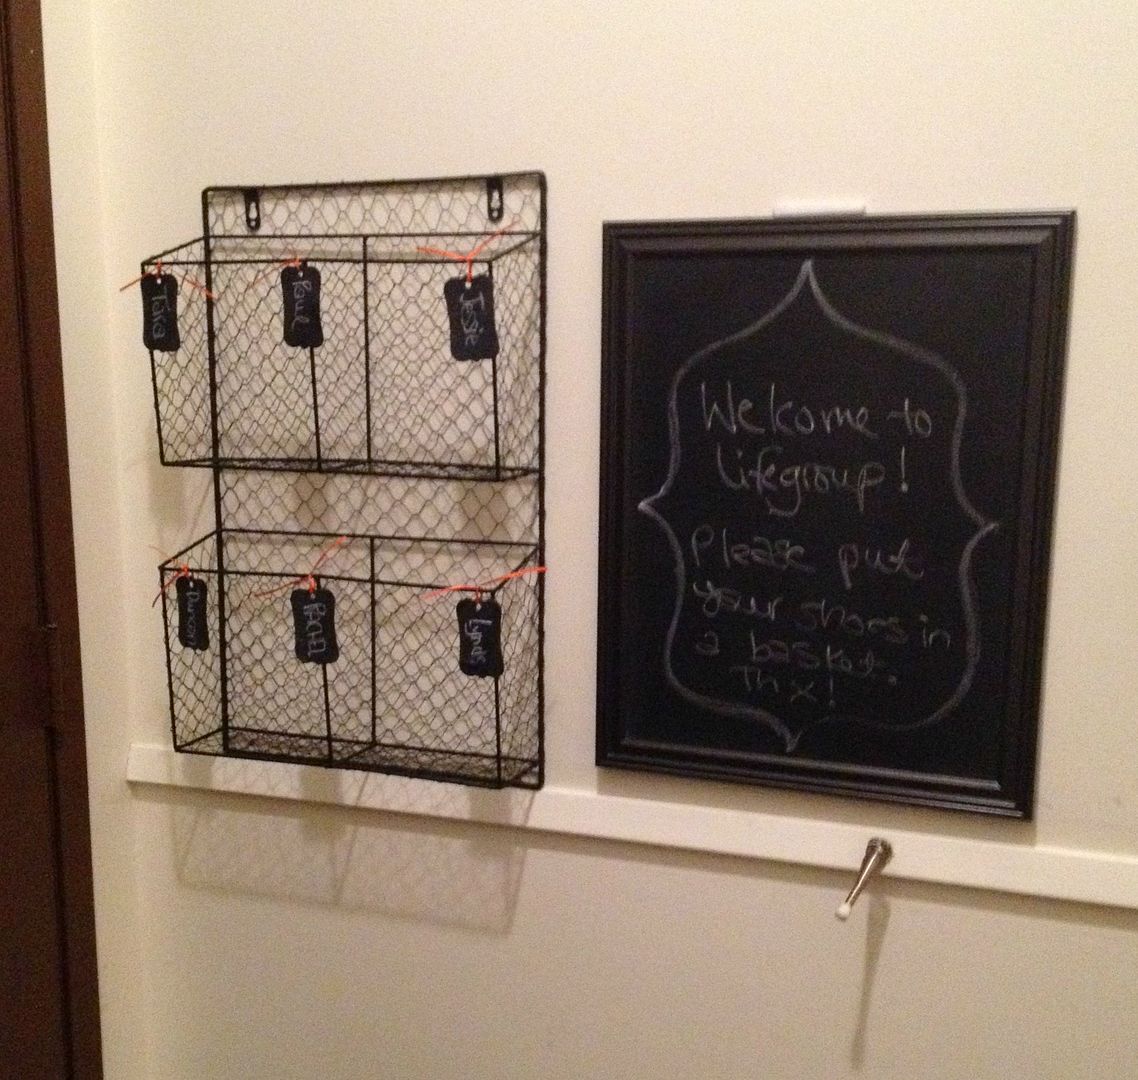 Paul
Jessie
Duncan
RACHEL
Lynds
Welcome to
lifegroup!
Please put
your shoes in
a basket.
Thx!